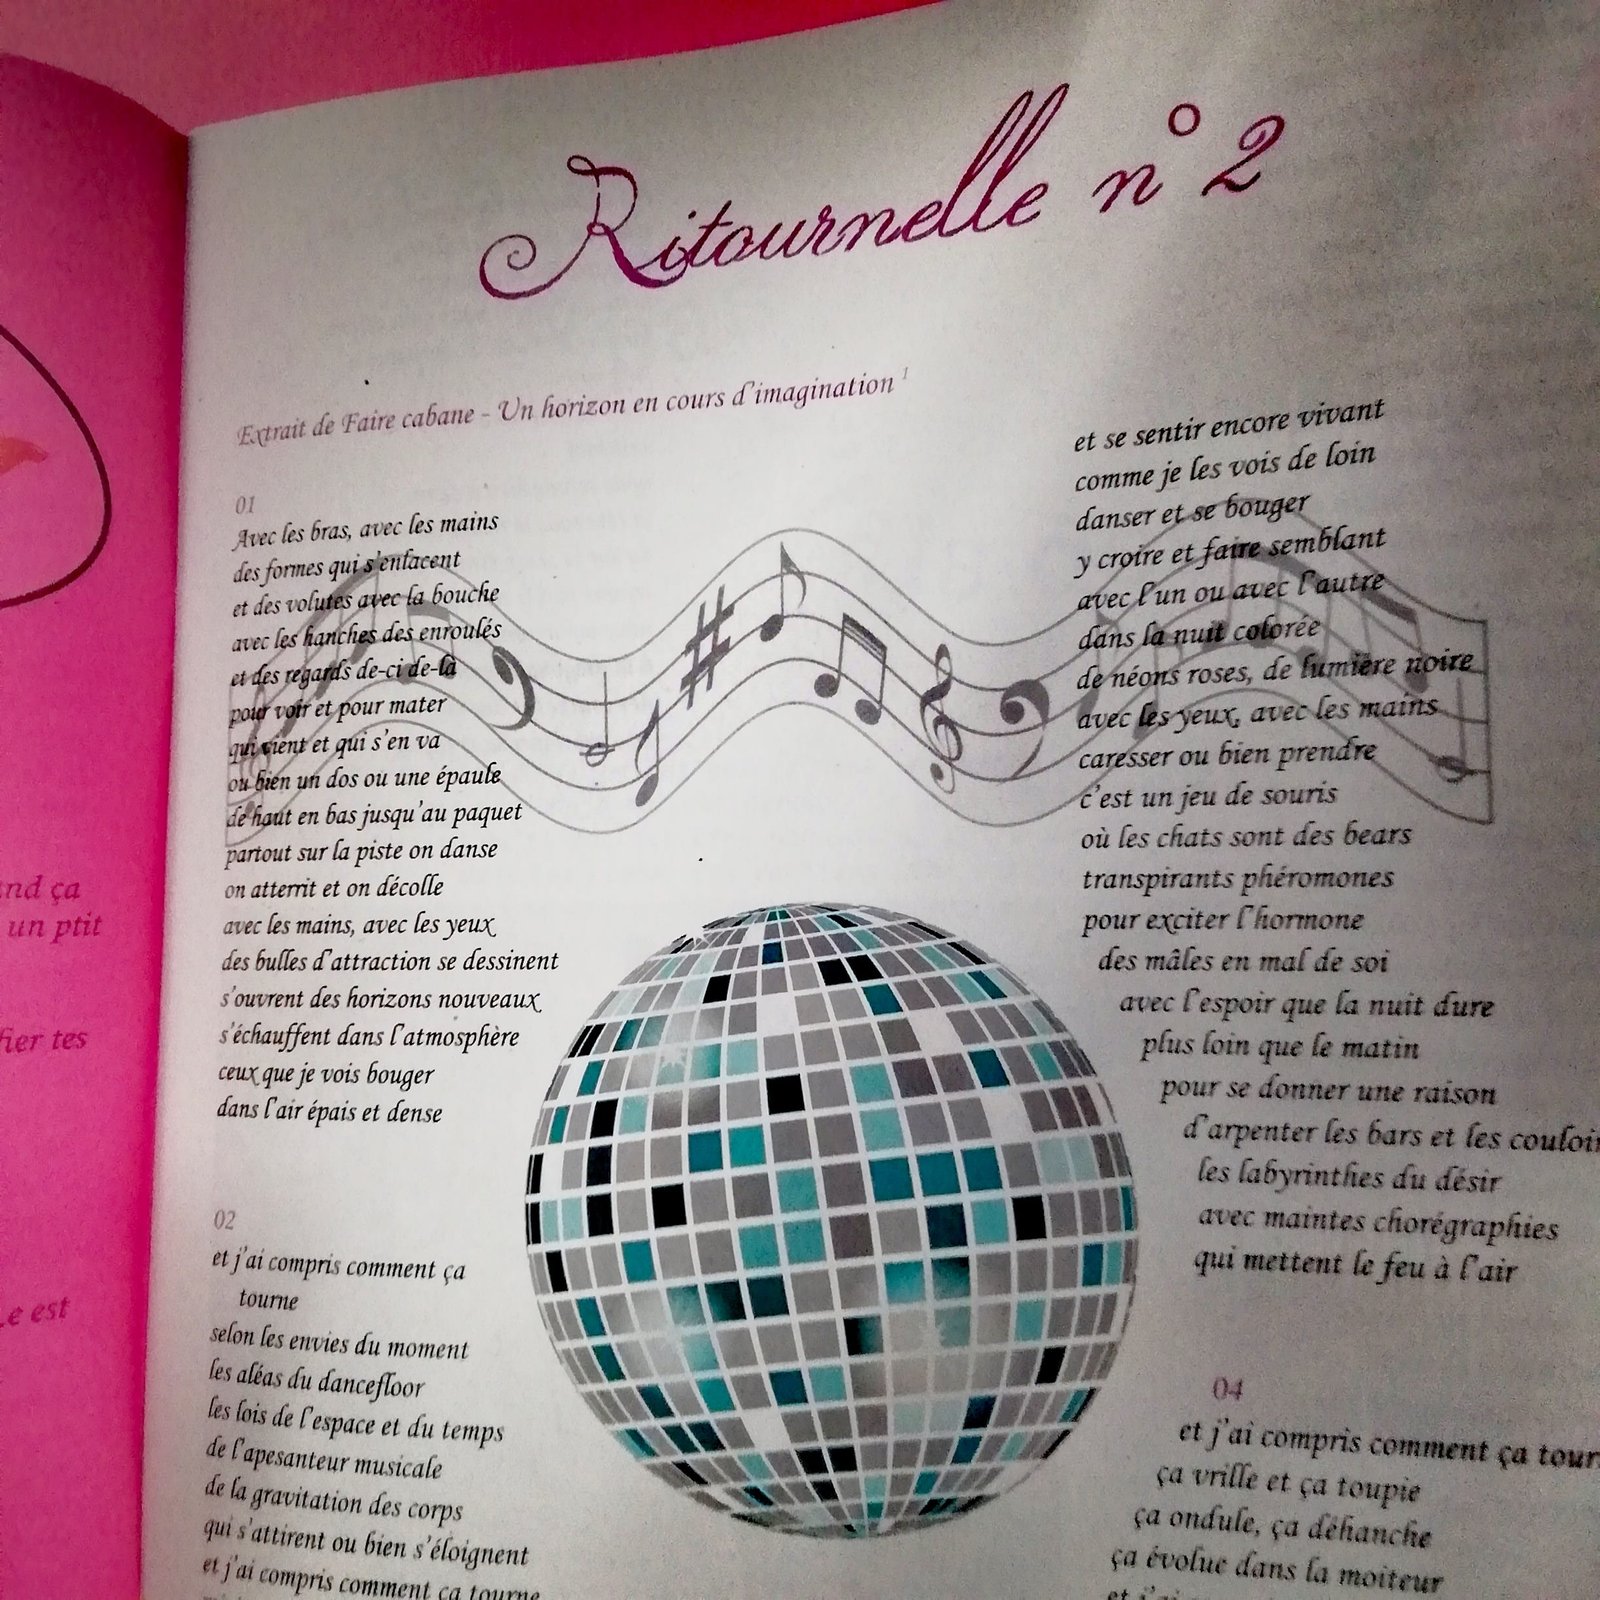 nd ça
un ptit
fier tes
e est
Ritournelle n° 2
Extrait de Faire cabane - Un horizon en cours d'imagination 1
01
Avec les bras, avec les mains
des formes qui s'enlacent
et des volutes avec la bouche
avec les hanches des enroulés
et des regards de-ci de-là
pour voir et pour mater
qui vient et qui s'en va
ou bien un dos ou une épaule
de haut en bas jusqu'au paquet
partout sur la piste on danse
on atterrit et on décolle
avec les mains, avec les yeux
des bulles d'attraction se dessinent
s'ouvrent des horizons nouveaux
s'échauffent dans l'atmosphère
ceux que je vois bouger
dans l'air épais et dense
02
et j'ai compris comment ça
tourne
selon les envies du moment
les aléas du dancefloor
les lois de l'espace et du temps
de l'apesanteur musicale
de la gravitation des corps
qui s'attirent ou bien s'éloignent
et j'ai compris comment ça tourne
et se sentir encore vivant
comme je les vois de loin
danser et se bouger
y croire et faire semblant
avec l'un ou avec l'autre
dans la nuit colorée
de néons roses, de lumière noire
avec les yeux, avec les mains
caresser ou bien prendre
c'est un jeu de souris
où les chats sont des bears
transpirants phéromones
pour exciter l'hormone
des mâles en mal de soi
avec l'espoir que la nuit dure
plus loin que le matin
pour se donner une raison
d'arpenter les bars et les couloir
les labyrinthes du désir
avec maintes chorégraphies
qui mettent le feu à l'air
04
et j'ai compris comment ça tour
ça vrille et ça toupie
ça ondule, ça déhanche
ça évolue dans la moiteur
et j'ai